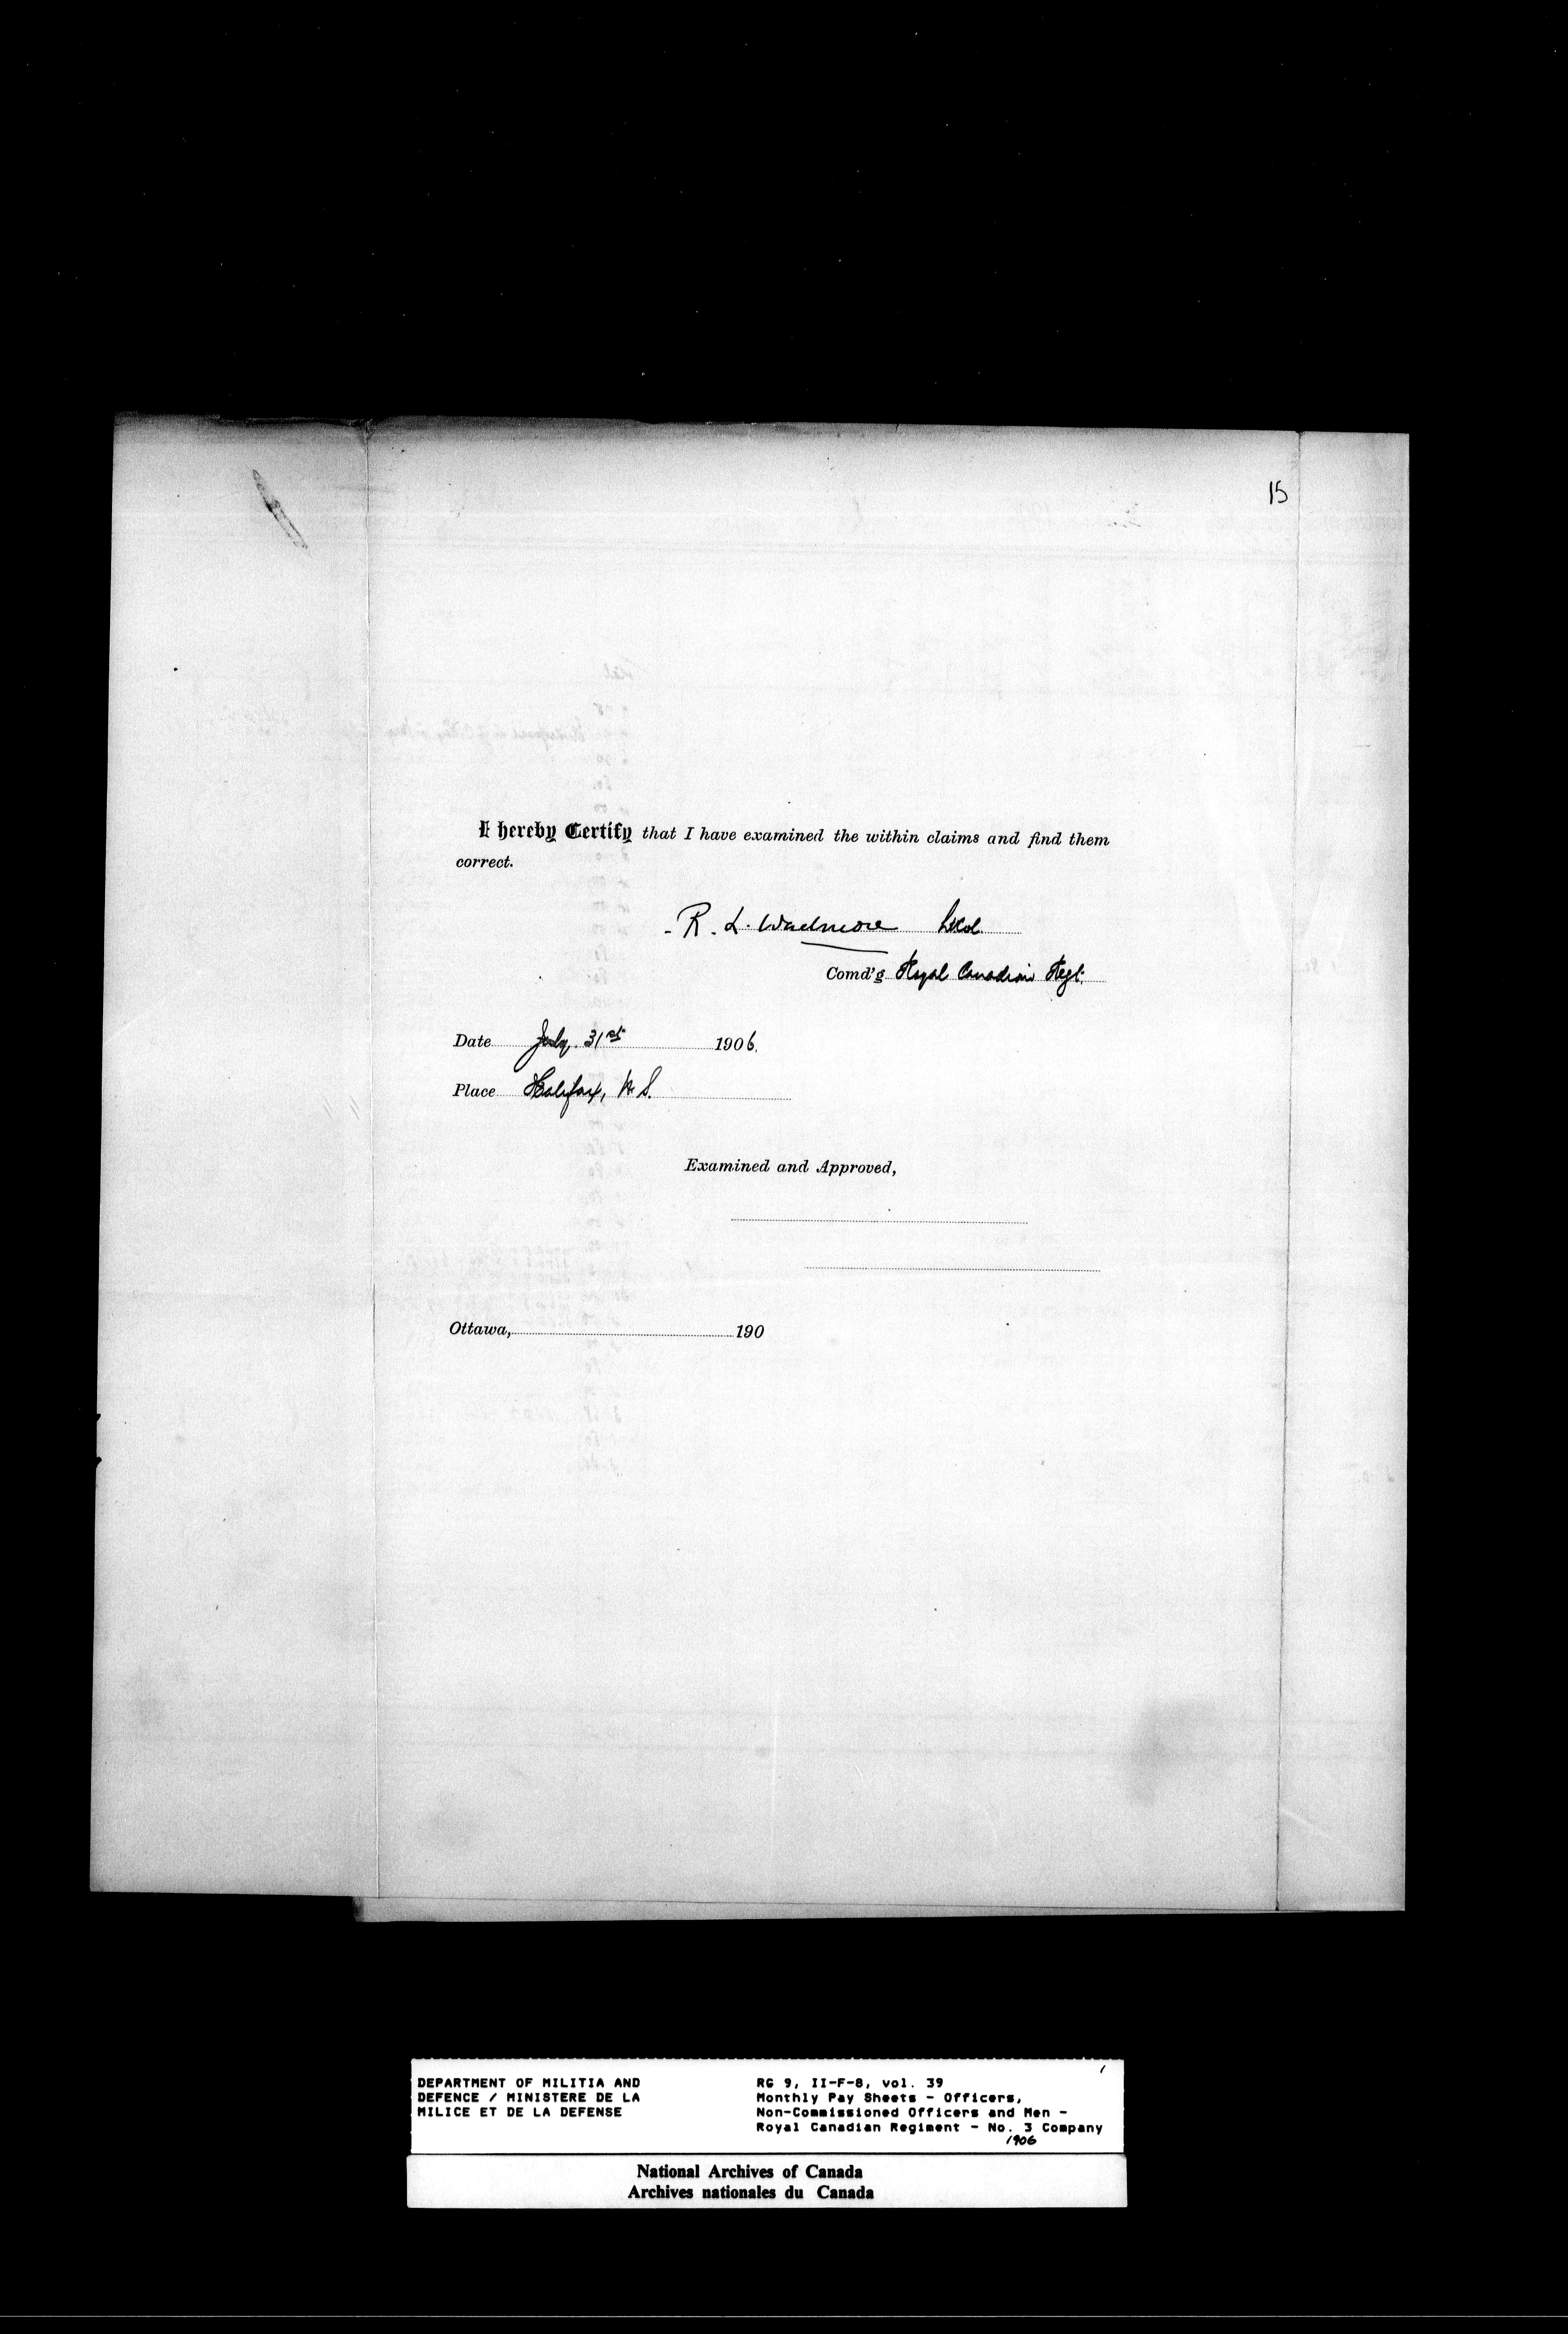 15
I hereby Certify that I have examined the within claims and find them
correct.
R. L. Wadmore Lt Col.
Comd'g Royal Canadian Regt.
Date July. 31st 1906.
Place Halifax, N. S.
Examined and Approved,
Ottawa, 190
DEPARTMENT OF MILITIA AND
DEFENCE / MINISTERE DE LA
MILICE ET DE LA DEFENSE
RG 9, II-F-8, vol. 39
Monthly Pay Sheets - Officers,
Non-Commissioned Officers and Men -
Royal Canadian Regiment - No. 3 Company
1906
National Archives of Canada
Archives nationales du Canada